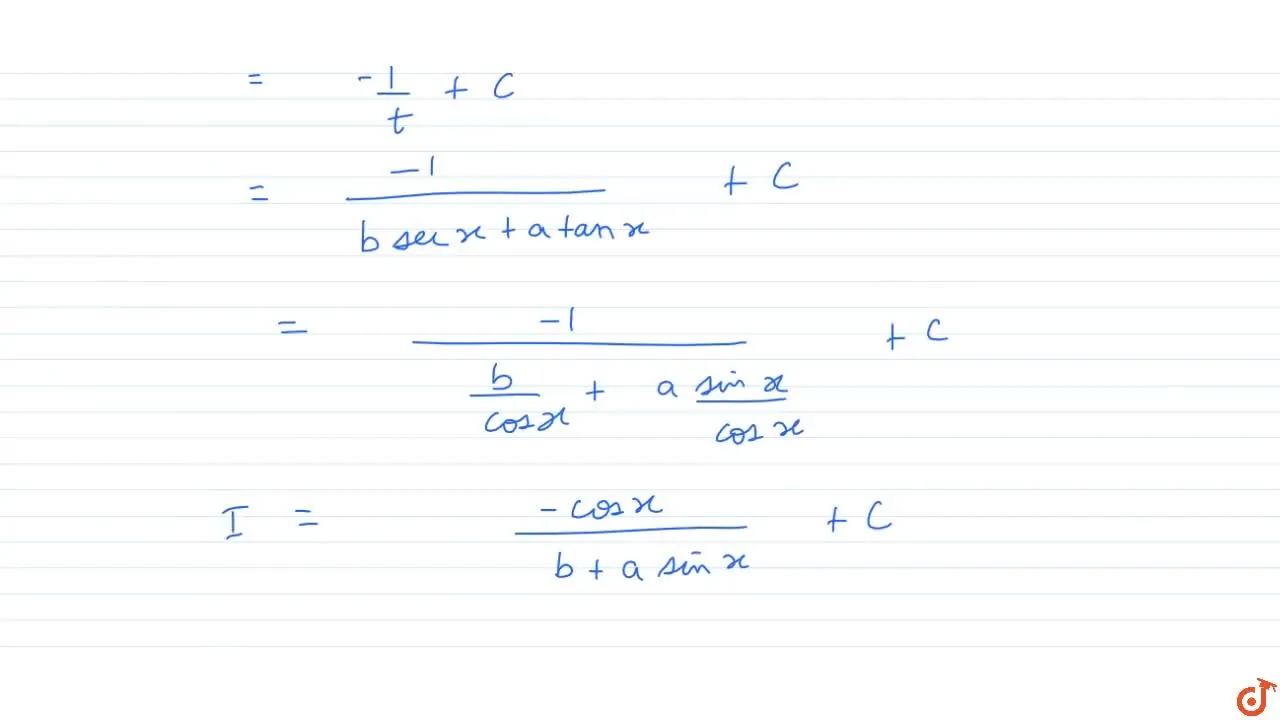 = -1/t + C
= -1/(b sec x + a tan x) + C
= -1/(b/cos x + a sin x/cos x) + C
I = -cos x/(b + a sin x) + C